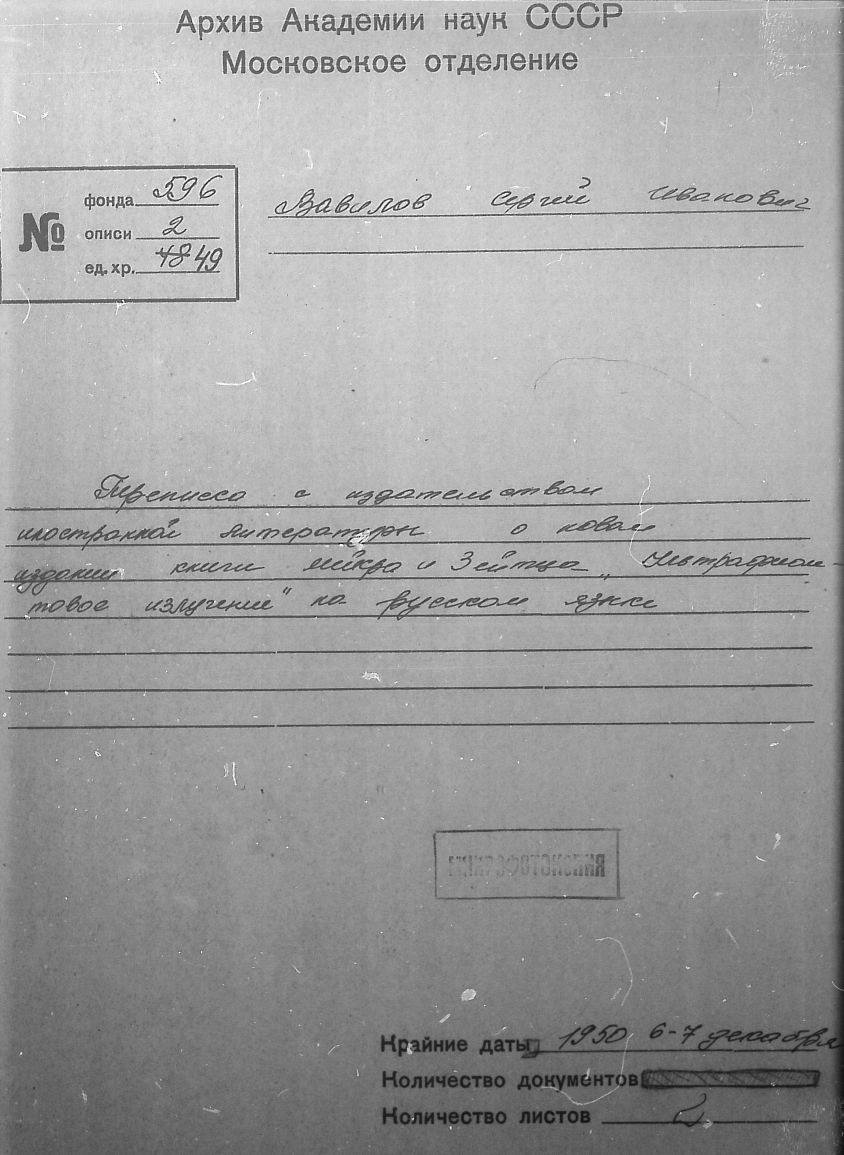 Архив Академии наук СССР
Московское отделение
№
фонда 596
описи 2
ед. хр. 48 49
Вавилов Сергей Иванович
Переписка с издательством
иностранной литературы о новом
издании книги Мейера и Зейтца „Ультрафиоле-
товое излучение" на русском языке
Крайние даты 1950 6-7 декабря
Количество документов
Количество листов 2